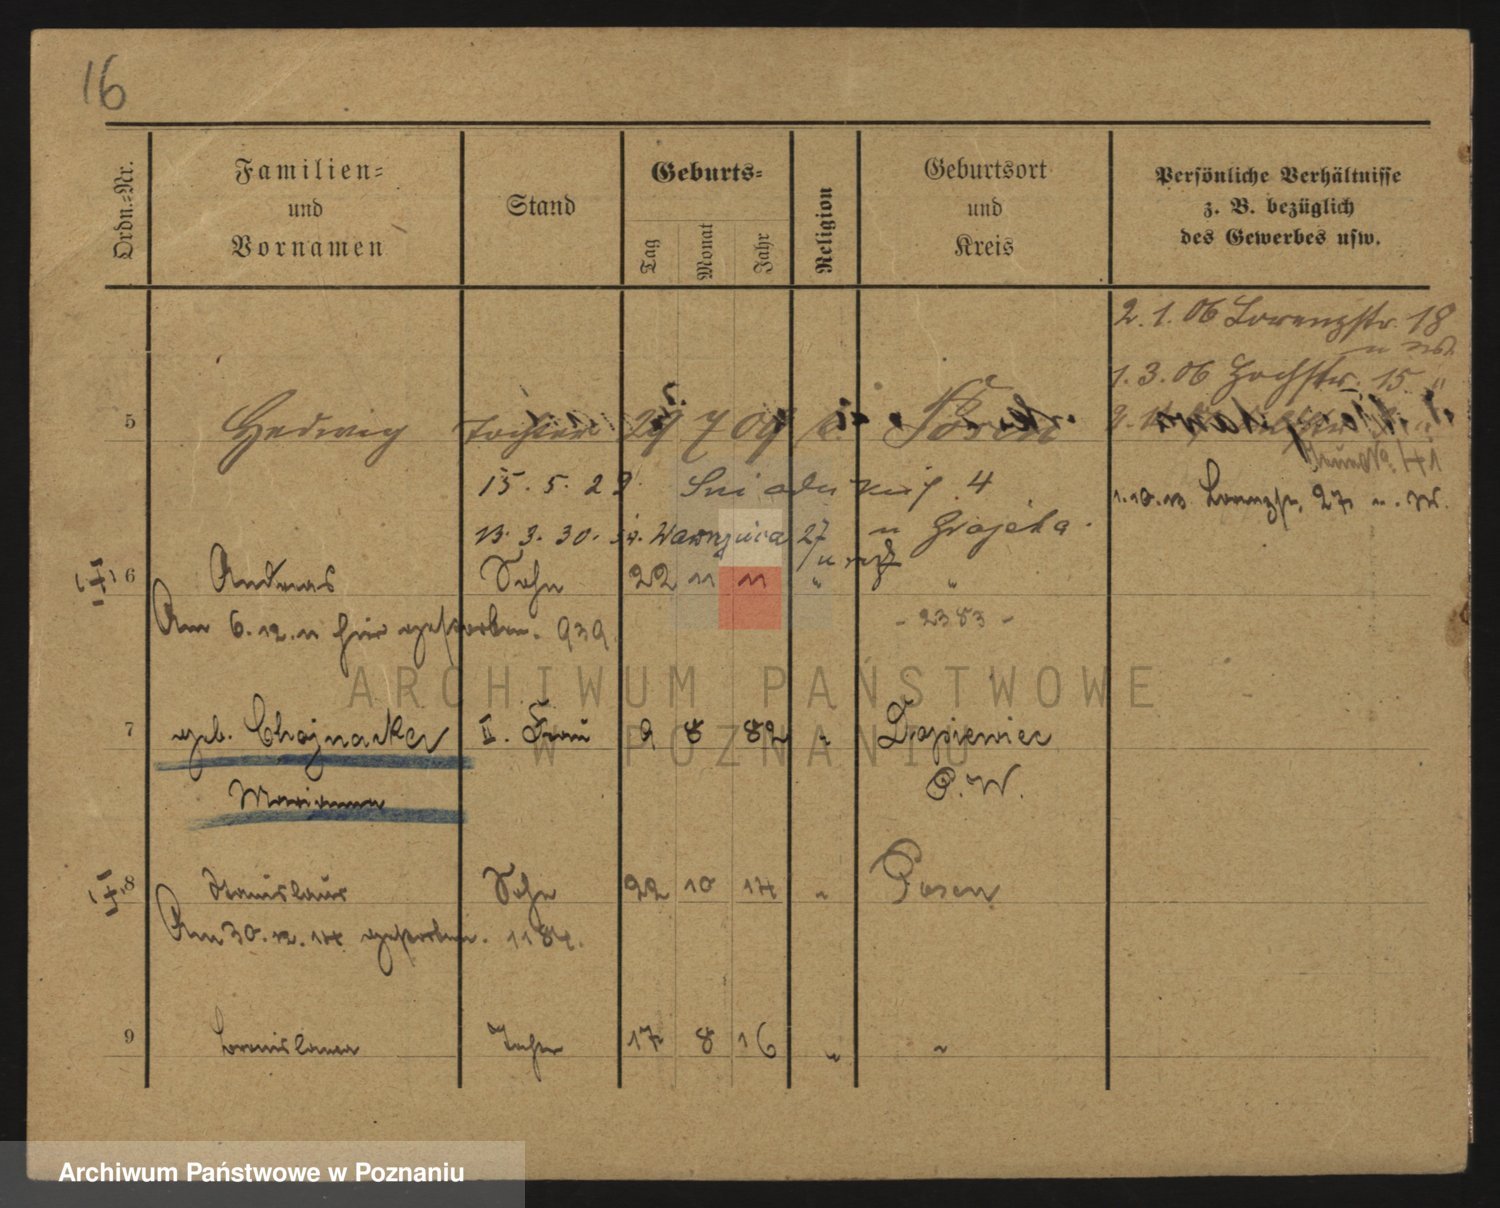 16
Ordn.-Nr.
Familien-
und
Vornamen
Stand
Geburts-
Tag
Monat
Jahr
Religion
Geburtsort
und
Kreis
Persönliche Verhältnisse
z. B. bezüglich
des Gewerbes usw.
2.1.06 Lorenzstr. 18
1.3.06 Hochstr. 15 "
5 Hedwig Tochter 29 7 09 Posen
15. 5. 22 Śniadeckich 4
1.10.13 Lorenzstr. 27 u. W.
13. 3. 30. św. Wawrzyńca 27
6 Andreas Sohn 22 11 11 " "
Am 6.12.11 hier gestorben. 939.
- 2383 -
7 geb. Chojnacka II. Frau 9 8 82 " Dopiewiec
P. W.
Marianna
8 Stanislaus Sohn 22 10 14 " Posen
Am 30.12.14 gestorben. 1184.
9 Bronislawa Tochter 17 8 16 " "
ARCHIWUM PAŃSTWOWE
W POZNANIU
Archiwum Państwowe w Poznaniu